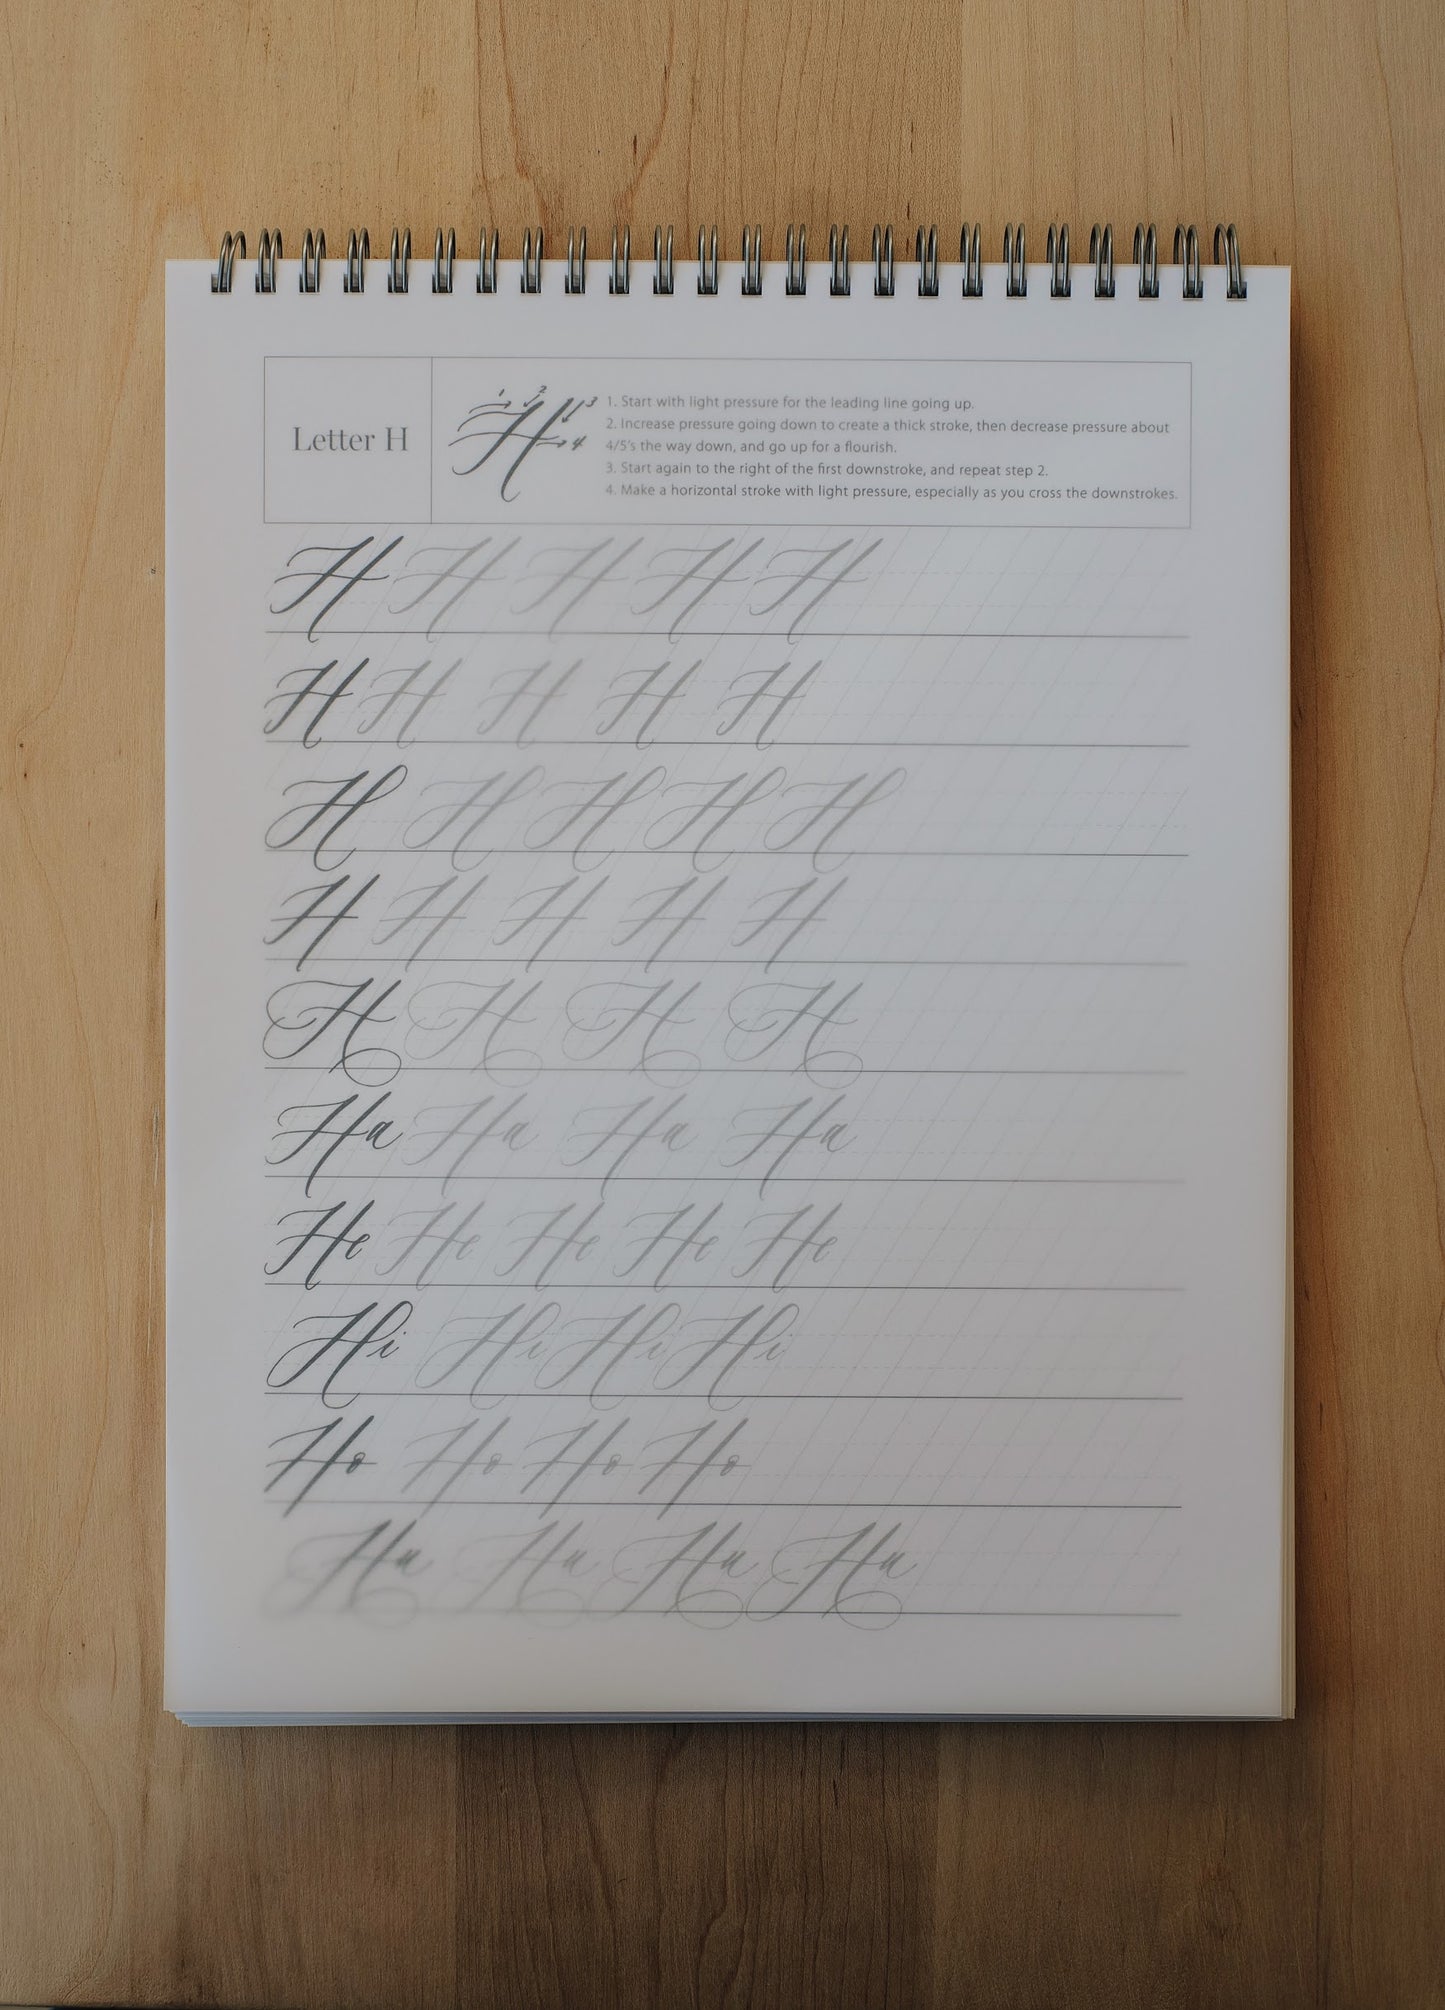 Letter H
1 2 3 4
1. Start with light pressure for the leading line going up.
2. Increase pressure going down to create a thick stroke, then decrease pressure about
4/5's the way down, and go up for a flourish.
3. Start again to the right of the first downstroke, and repeat step 2.
4. Make a horizontal stroke with light pressure, especially as you cross the downstrokes.
H
H H H H H
H H H H H
H H H H H
H H H H H
H H H H
Ha Ha Ha Ha
He He He He He
Hi Hi Hi Hi
Ho Ho Ho Ho
Hu Hu Hu Hu